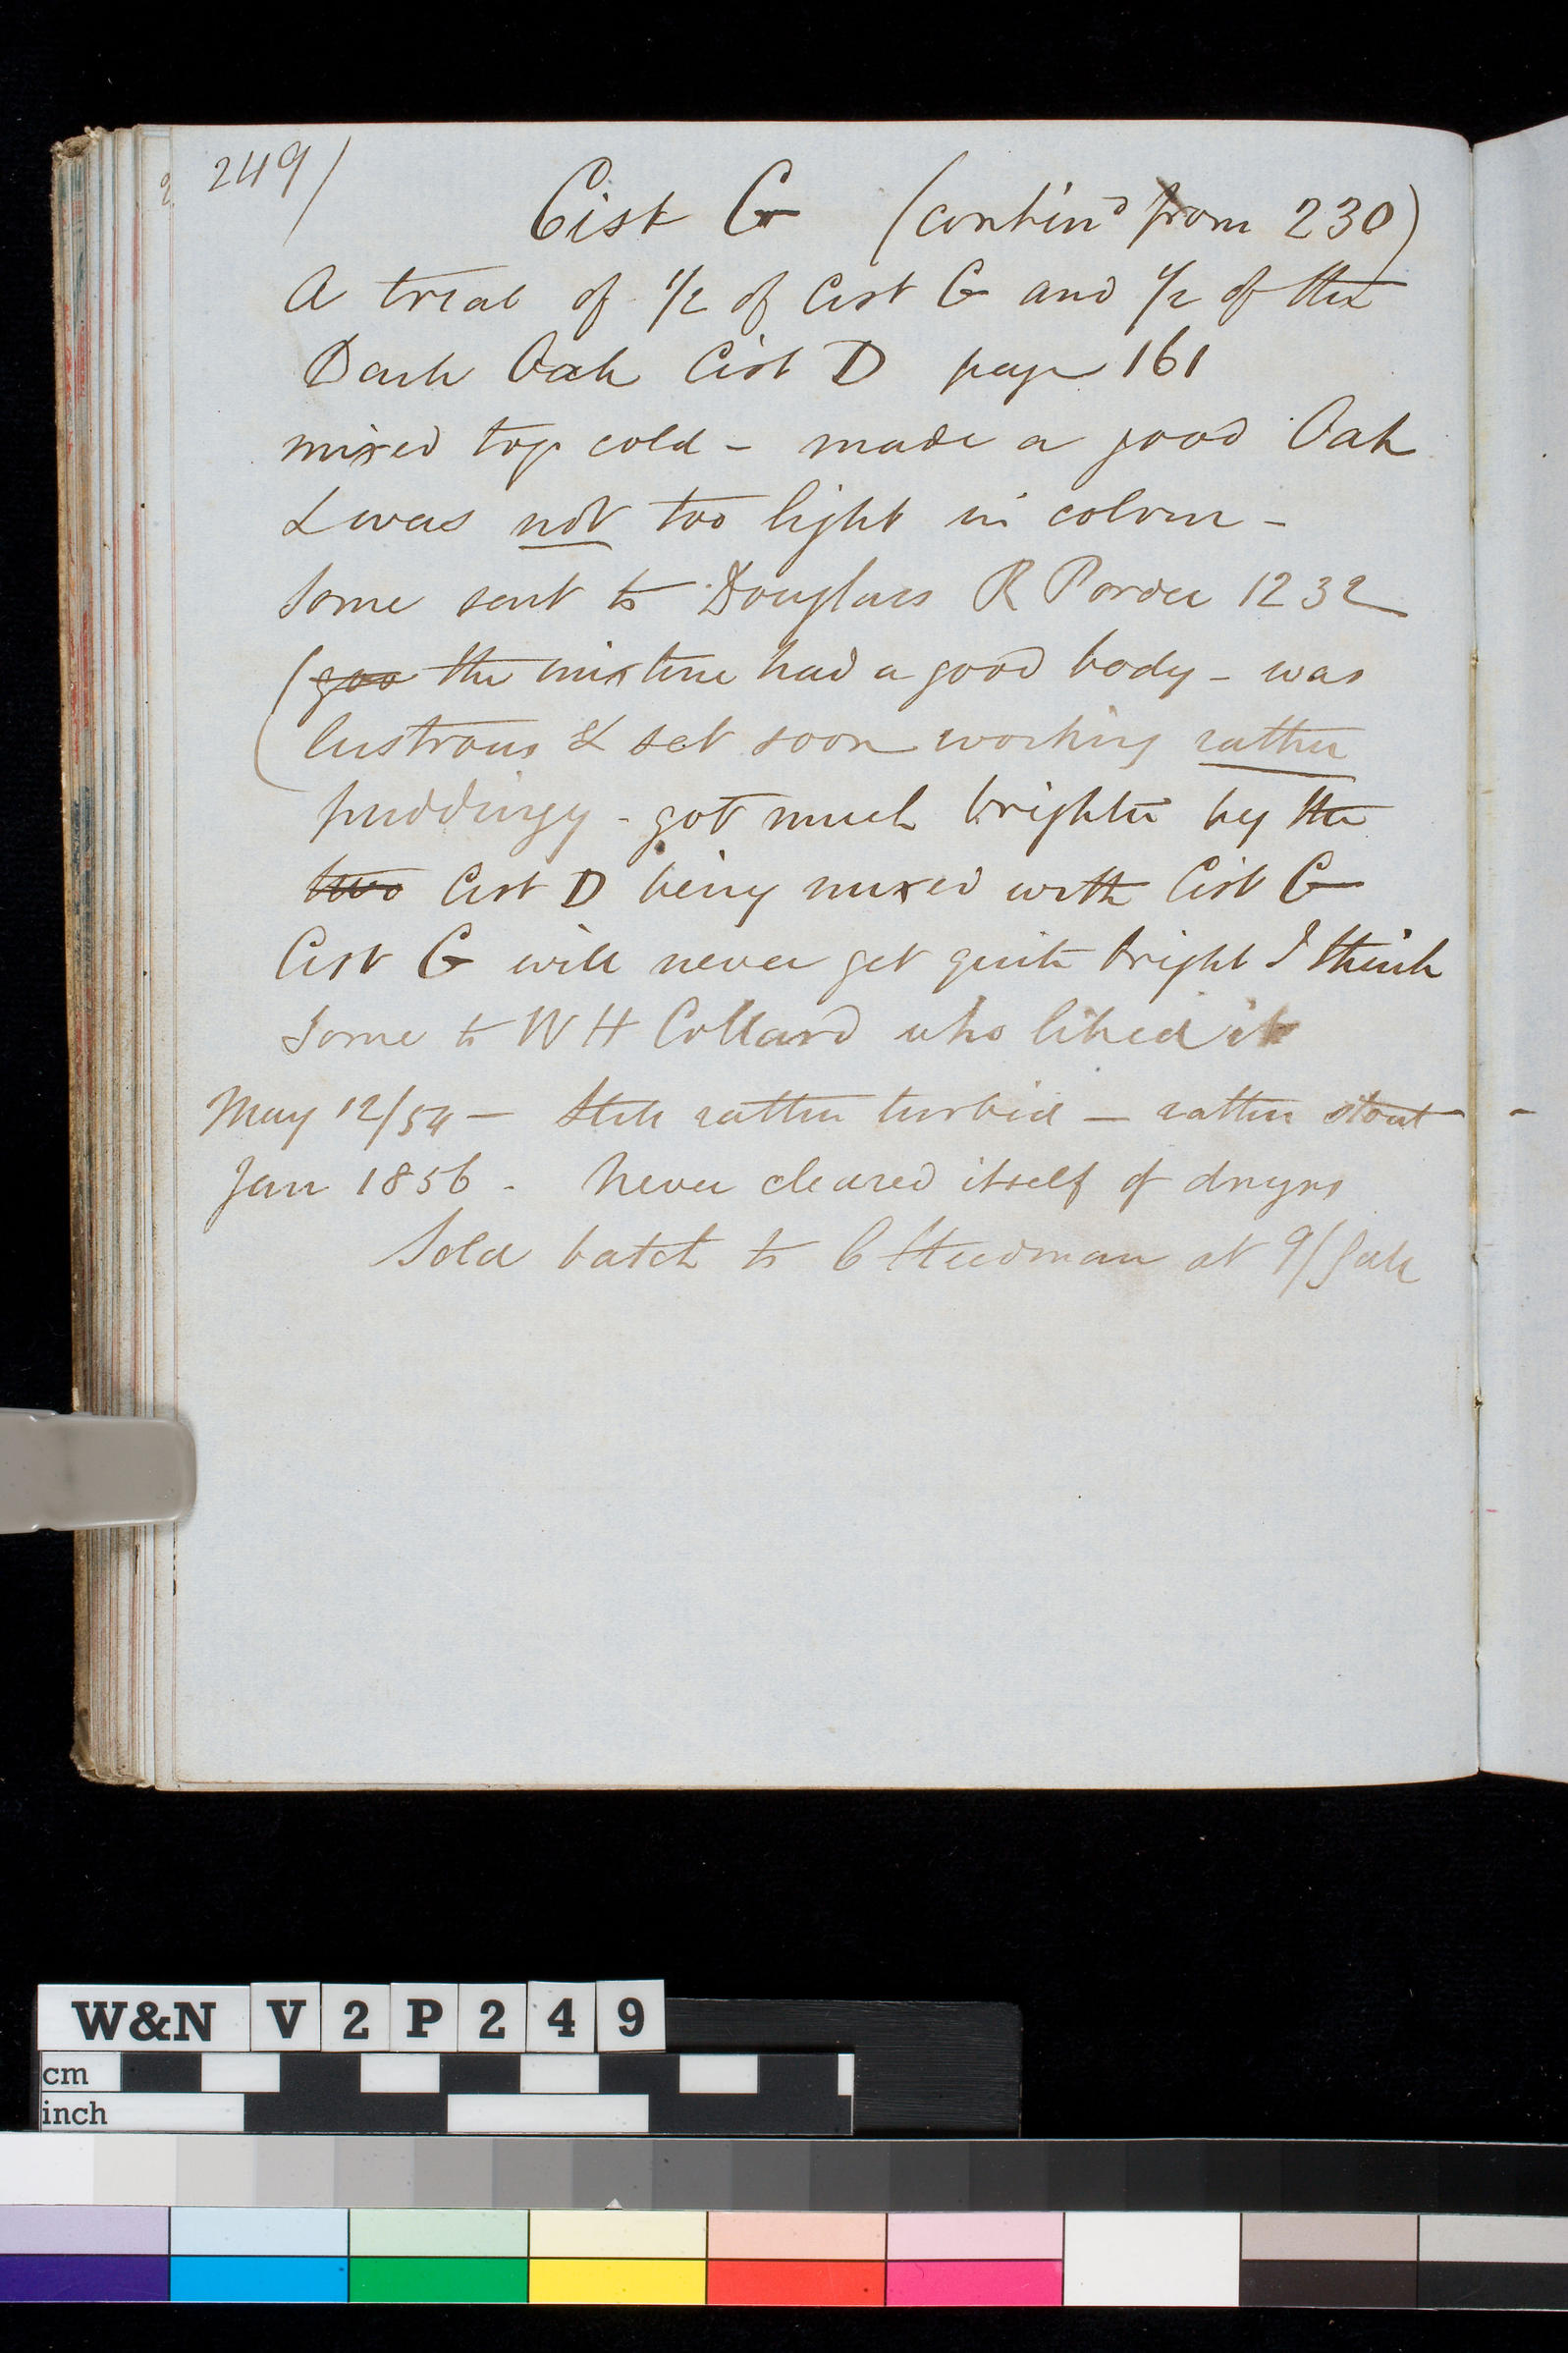 249/
Cist G (contin^d from 230)
A trial of 1/2 of Cist G and 1/2 of the
Dark Oak Cist D page 161
mixed tog cold - made a good Oak
& was not too light in colour -
Some sent to Douglass R P order 1232
(goo the mixture had a good body - was
lustrous & set soon working rather
puddingy - got much brighter by the
two Cist D being mixed with Cist G
Cist G will never get quite bright I think
Some to W H Collard who liked it
May 12/54 - Still rather turbid - rather stout -
Jan 1856 - Never cleared itself of
Sold batch to C Steedman at 9/ Gall
W&N V 2 P 2 4 9
cm
inch